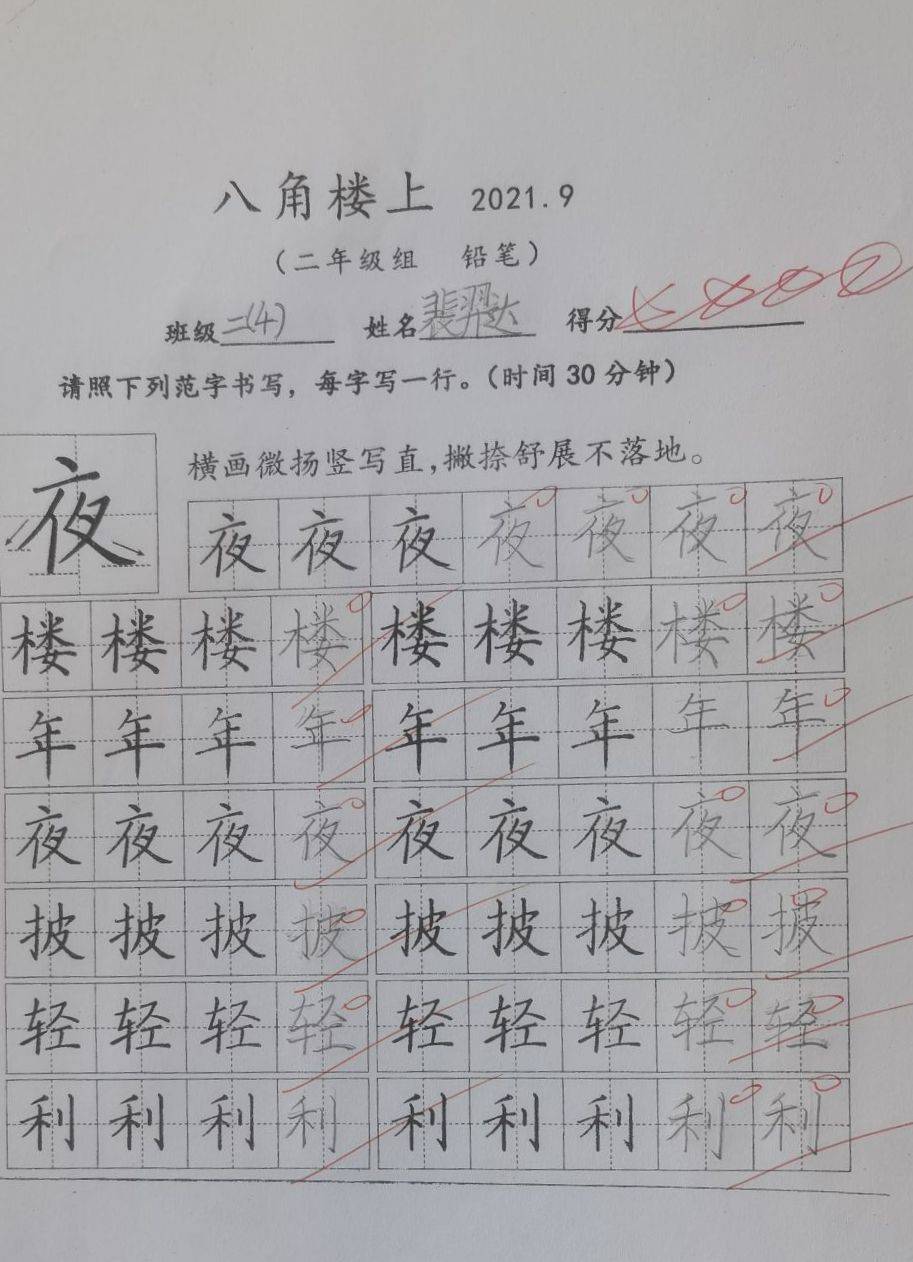 八角楼上 2021.9
（二年级组 铅笔）
班级二(4) 姓名裴羿达 得分
请照下列范字书写，每字写一行。（时间30分钟）
横画微扬竖写直，撇捺舒展不落地。
夜 夜 夜 夜 夜 夜 夜 夜
楼 楼 楼 楼 楼 楼 楼 楼 楼
年 年 年 年 年 年 年 年 年
夜 夜 夜 夜 夜 夜 夜 夜 夜
披 披 披 披 披 披 披 披 披
轻 轻 轻 轻 轻 轻 轻 轻 轻
利 利 利 利 利 利 利 利 利